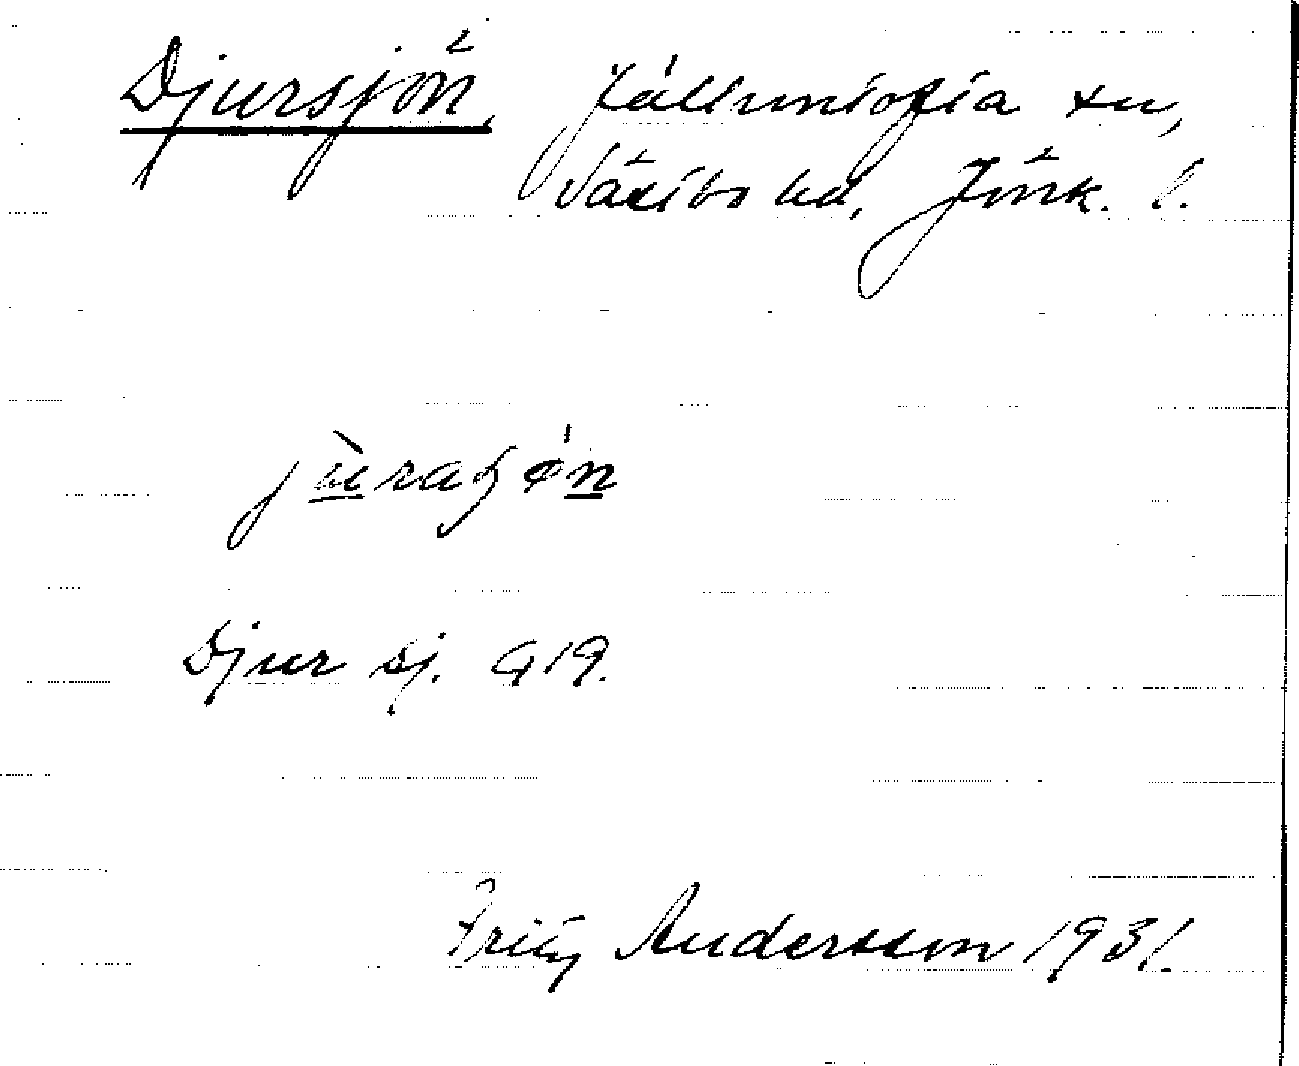 Djursjön, Källunsofia sn,
Västbo hd, Jönk. l.
jùraʂǿn
Djur sj. G 19.
Fritz Andersson 1931.